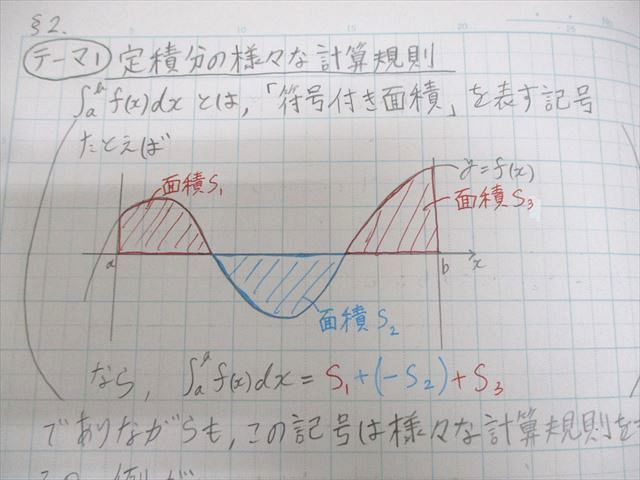 §2.
テーマ1 定積分の様々な計算規則
∫ₐᵇ f(x)dx とは,「符号付き面積」を表す記号
たとえば
y=f(x)
面積S₁
面積S₃
a
b
x
面積S₂
なら, ∫ₐᵇ f(x)dx = S₁+(-S₂)+S₃
でありながらも,この記号は様々な計算規則を